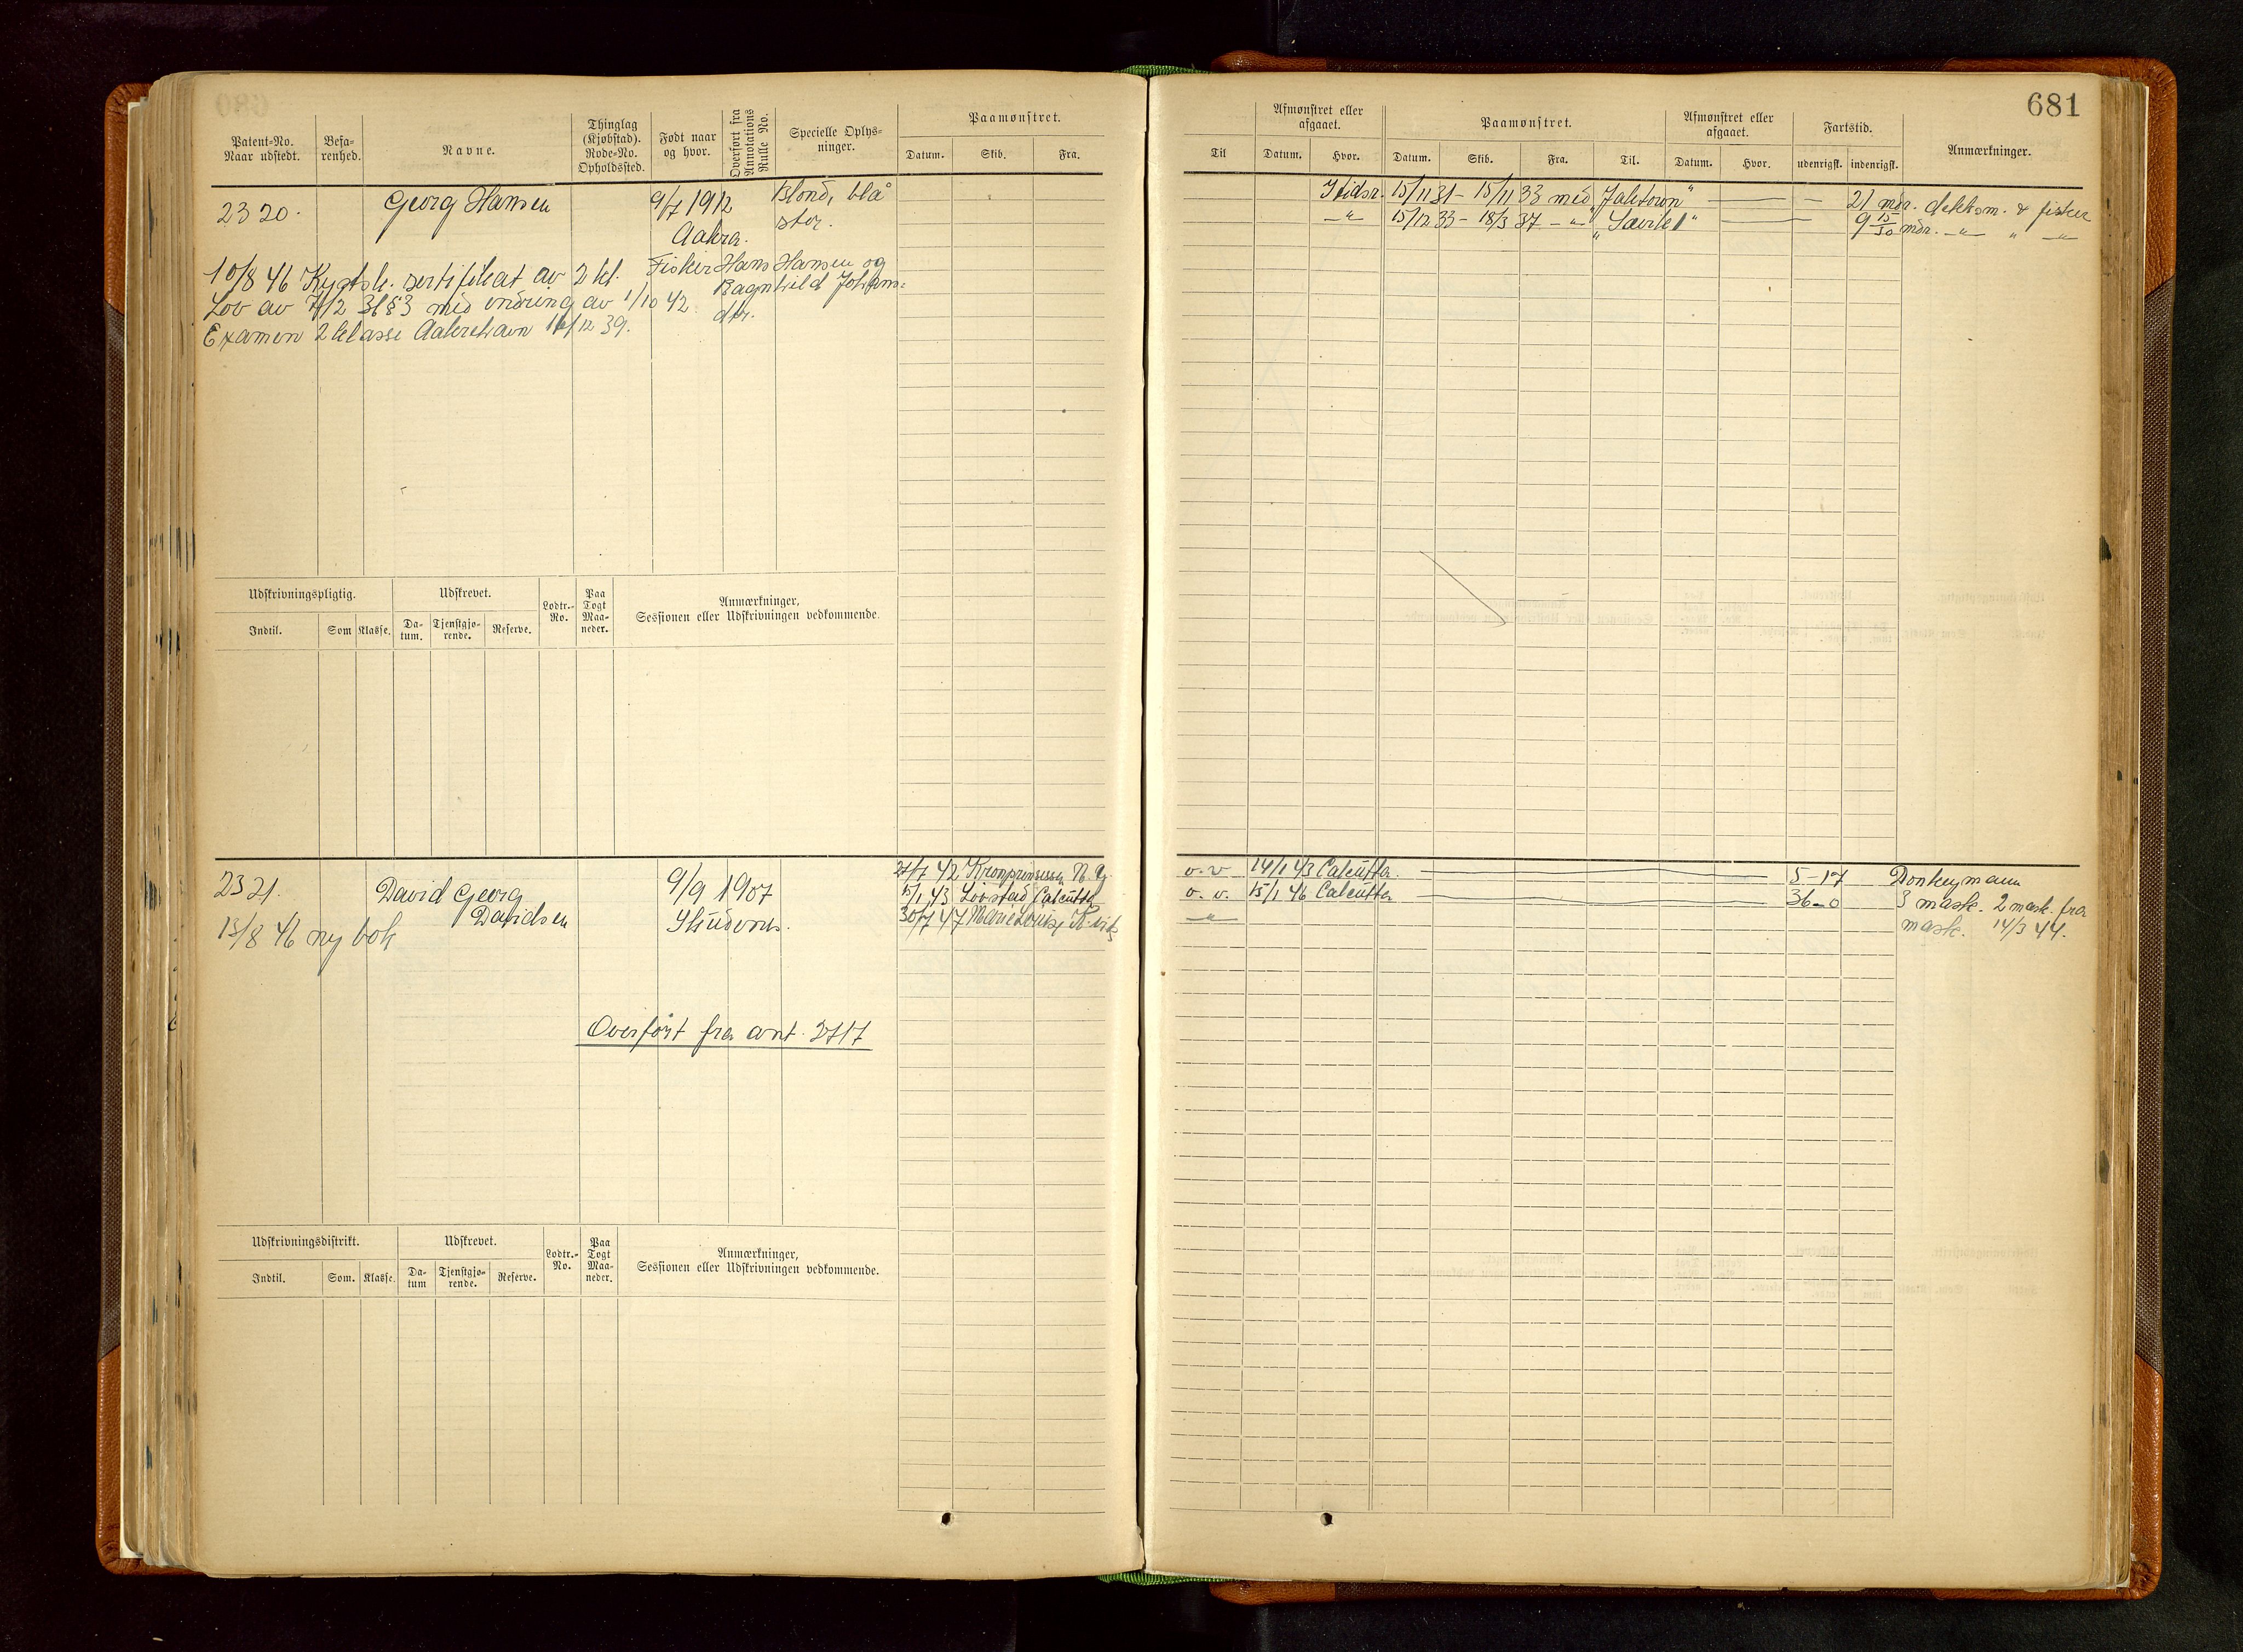 681
Patent-No. Naar udstedt.
Befa-renhed.
Navne.
Thinglag (Kjøbstad). Rode-No. Opholdssted.
Født naar og hvor.
Overført fra Annotations Rulle No.
Specielle Oplys-ninger.
Paamønstret.
Datum.
Skib.
Fra.
Til
Afmønstret eller afgaaet.
Datum.
Hvor.
Paamønstret.
Datum.
Skib.
Fra.
Til.
Afmønstret eller afgaaet.
Datum.
Hvor.
Fartstid.
udenrigsk.
indenrigsk.
Anmærkninger.
2320.
Georg Hansen
9/7 1912
Aakra.
Blond, blå
stor.
15/11 31 - 15/11 33 med
21 mdr. dekksm. & fisker
15/12 33 - 18/3 37 - " -
9 15/30 mdr. - " - " - " -
10/8 46 Kystsk. sertifikat av 2 kl.
Fisker Hans Hansen og
Lov av 7/2 36 § 3 med endring av 1/10 42
Ragnhild Johans-
dtr.
Examen 2 klasse Aakrehavn 16/12 39.
Udskrivningspligtig.
Indtil.
Som
Klasse.
Udskrevet.
Da-tum.
Tjenstgjø-rende.
Reserve.
Lodtr.-No.
Paa Togt Maa-neder.
Anmærkninger,
Sessionen eller Udskrivningen vedkommende.
2321.
David Georg
Davidsen
9/9 1907
13/8 46 ny bok
27/7 42 Kronprinsessen N.Y.
v.v
14/1 43 Calcutta.
5-17
Donkeymann
15/1 43 Lovstad Calcutta
v.v.
15/1 46 Calcutta
36-0
3 mask. 2 mask. fra
30/7 47 Marie Louise
- " -
mask. 14/3 44.
Overført fra ant. 2717
Udskrivningsdistrikt.
Indtil.
Som.
Klasse.
Udskrevet.
Da-tum
Tjenstgjø-rende.
Reserve.
Lodtr.-No.
Paa Togt Maa-neder.
Anmærkninger,
Sessionen eller Udskrivningen vedkommende.